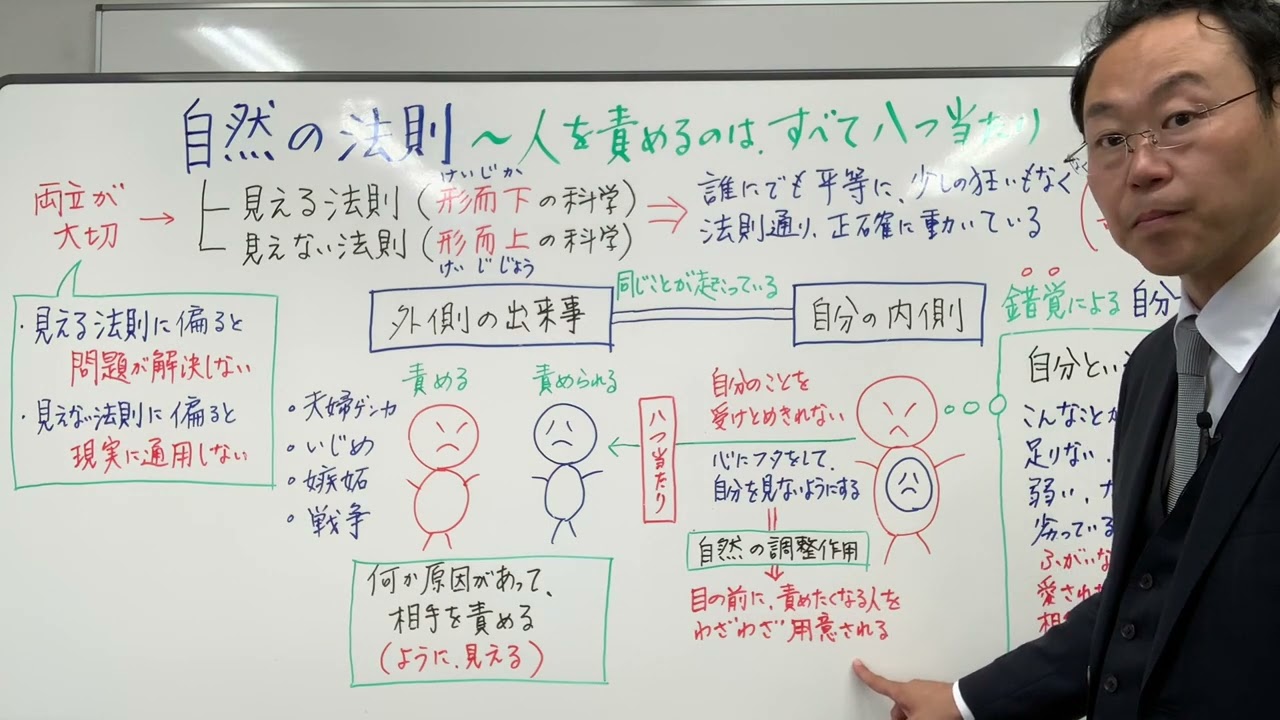 自然の法則 ～人を責めるのは、すべて八つ当たり
両立が
大切
けいじか
見える法則（形而下の科学）
見えない法則（形而上の科学）
けいじじょう
誰にでも平等に、少しの狂いもなく
法則通り、正確に動いている
・見える法則に偏ると
問題が解決しない
・見えない法則に偏ると
現実に通用しない
外側の出来事
同じことが起こっている
自分の内側
責める
責められる
・夫婦ゲンカ
・いじめ
・嫉妬
・戦争
何か原因があって、
相手を責める
（ように、見える）
八つ当たり
自分のことを
受けとめきれない
心にフタをして、
自分を見ないようにする
自然の調整作用
目の前に、責めたくなる人を
わざわざ用意される
錯覚による 自分
自分とい
こんなことが
足りない、
弱い、
劣っている
ふがいな
愛され
相